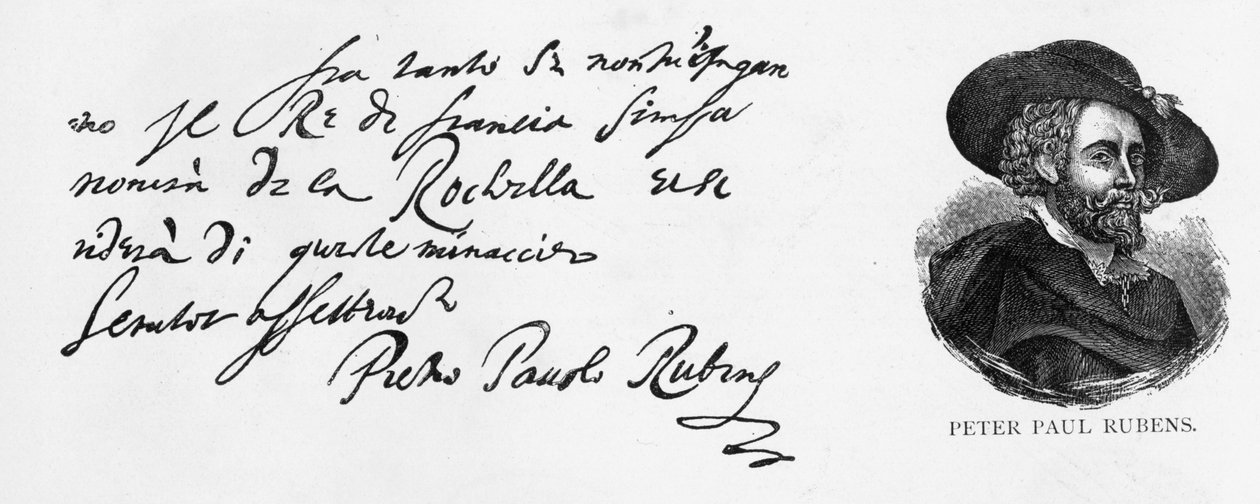 fra tanto si non m'ingan
no il Re di francia simpa
di la Rochella e si
riderà di queste minaccie
Servitor affettionato
Pietro Pauolo Rubens
PETER PAUL RUBENS.